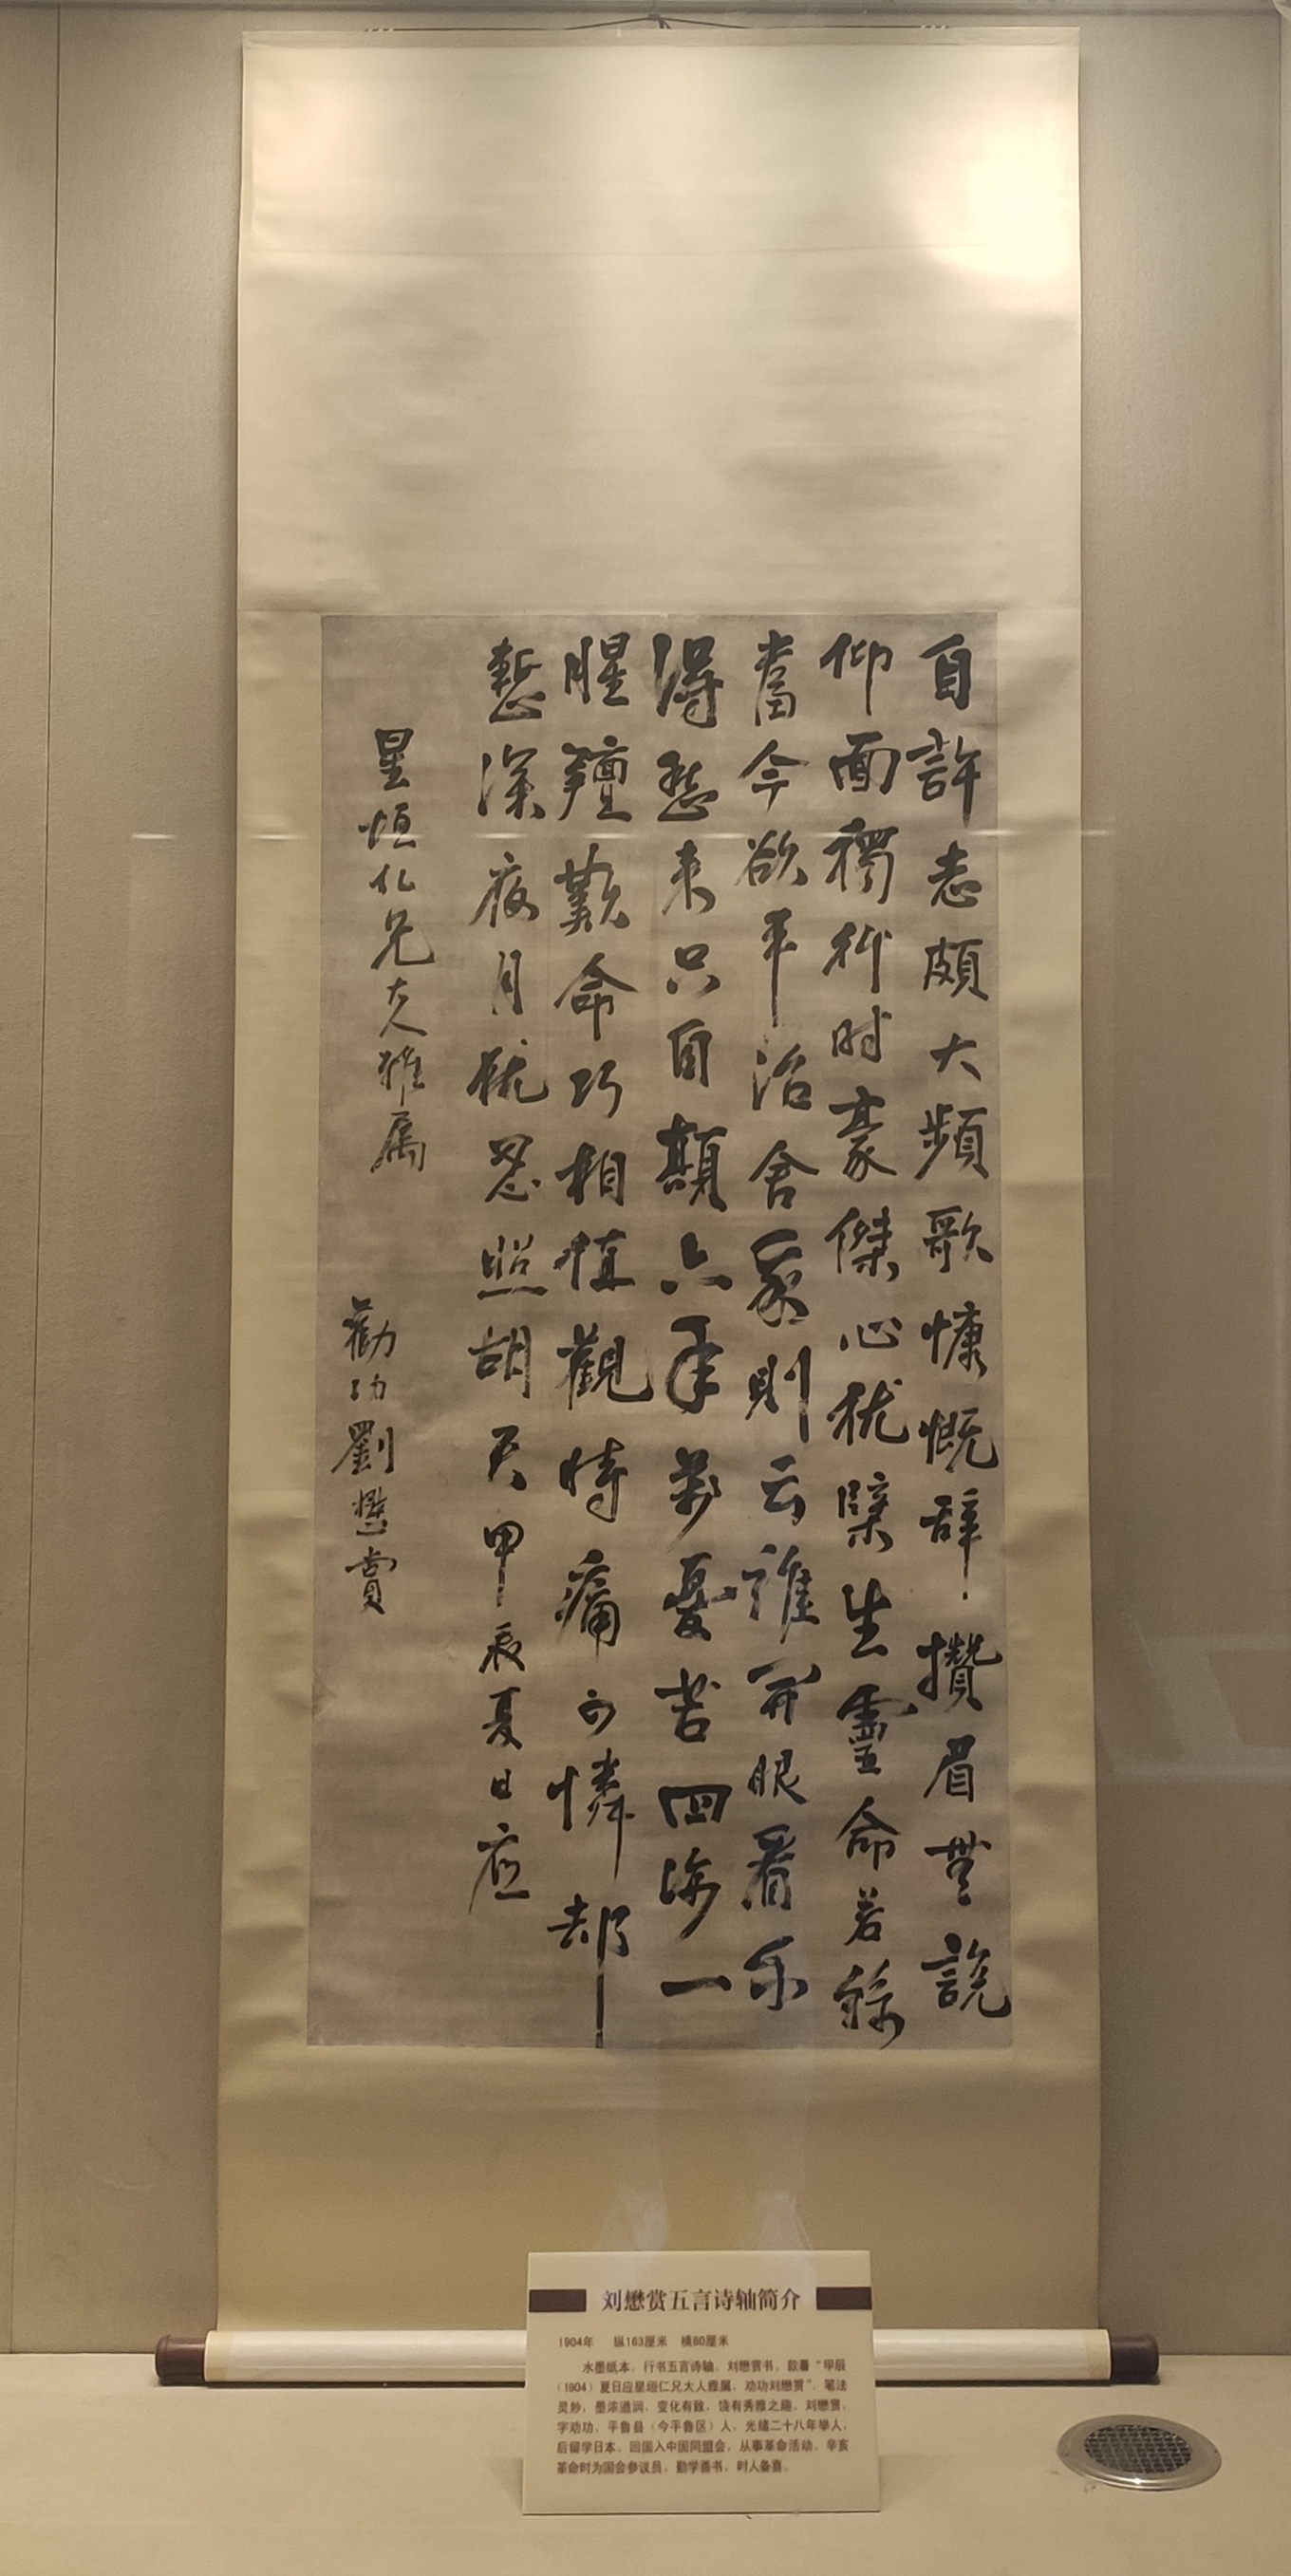 自許志頗大頻歌慷慨辞攢眉無說
仰面獨祈时豪傑心犹檗生靈命若絲
當今欲平治舍我則云誰開眼看乐
得愁来只自顛六年萬憂苦四海一
腥羶歎命巧相值觀時痛可憐却
慙深夜月犹忍照胡天甲辰夏日应
星垣仁兄大人雅属
勸功劉懋賞
刘懋赏五言诗轴简介
1904年 纵163厘米 横60厘米
水墨纸本，行书五言诗轴，刘懋赏书，款署“甲辰
（1904）夏日应星垣仁兄大人雅属，劝功刘懋赏”，笔法
灵妙，墨浓遒润，变化有致，饶有秀雅之趣，刘懋赏，
字劝功，平鲁县（今平鲁区）人，光绪二十八年举人，
后留学日本，回国入中国同盟会，从事革命活动，辛亥
革命时为国会参议员，勤学善书，时人备喜。